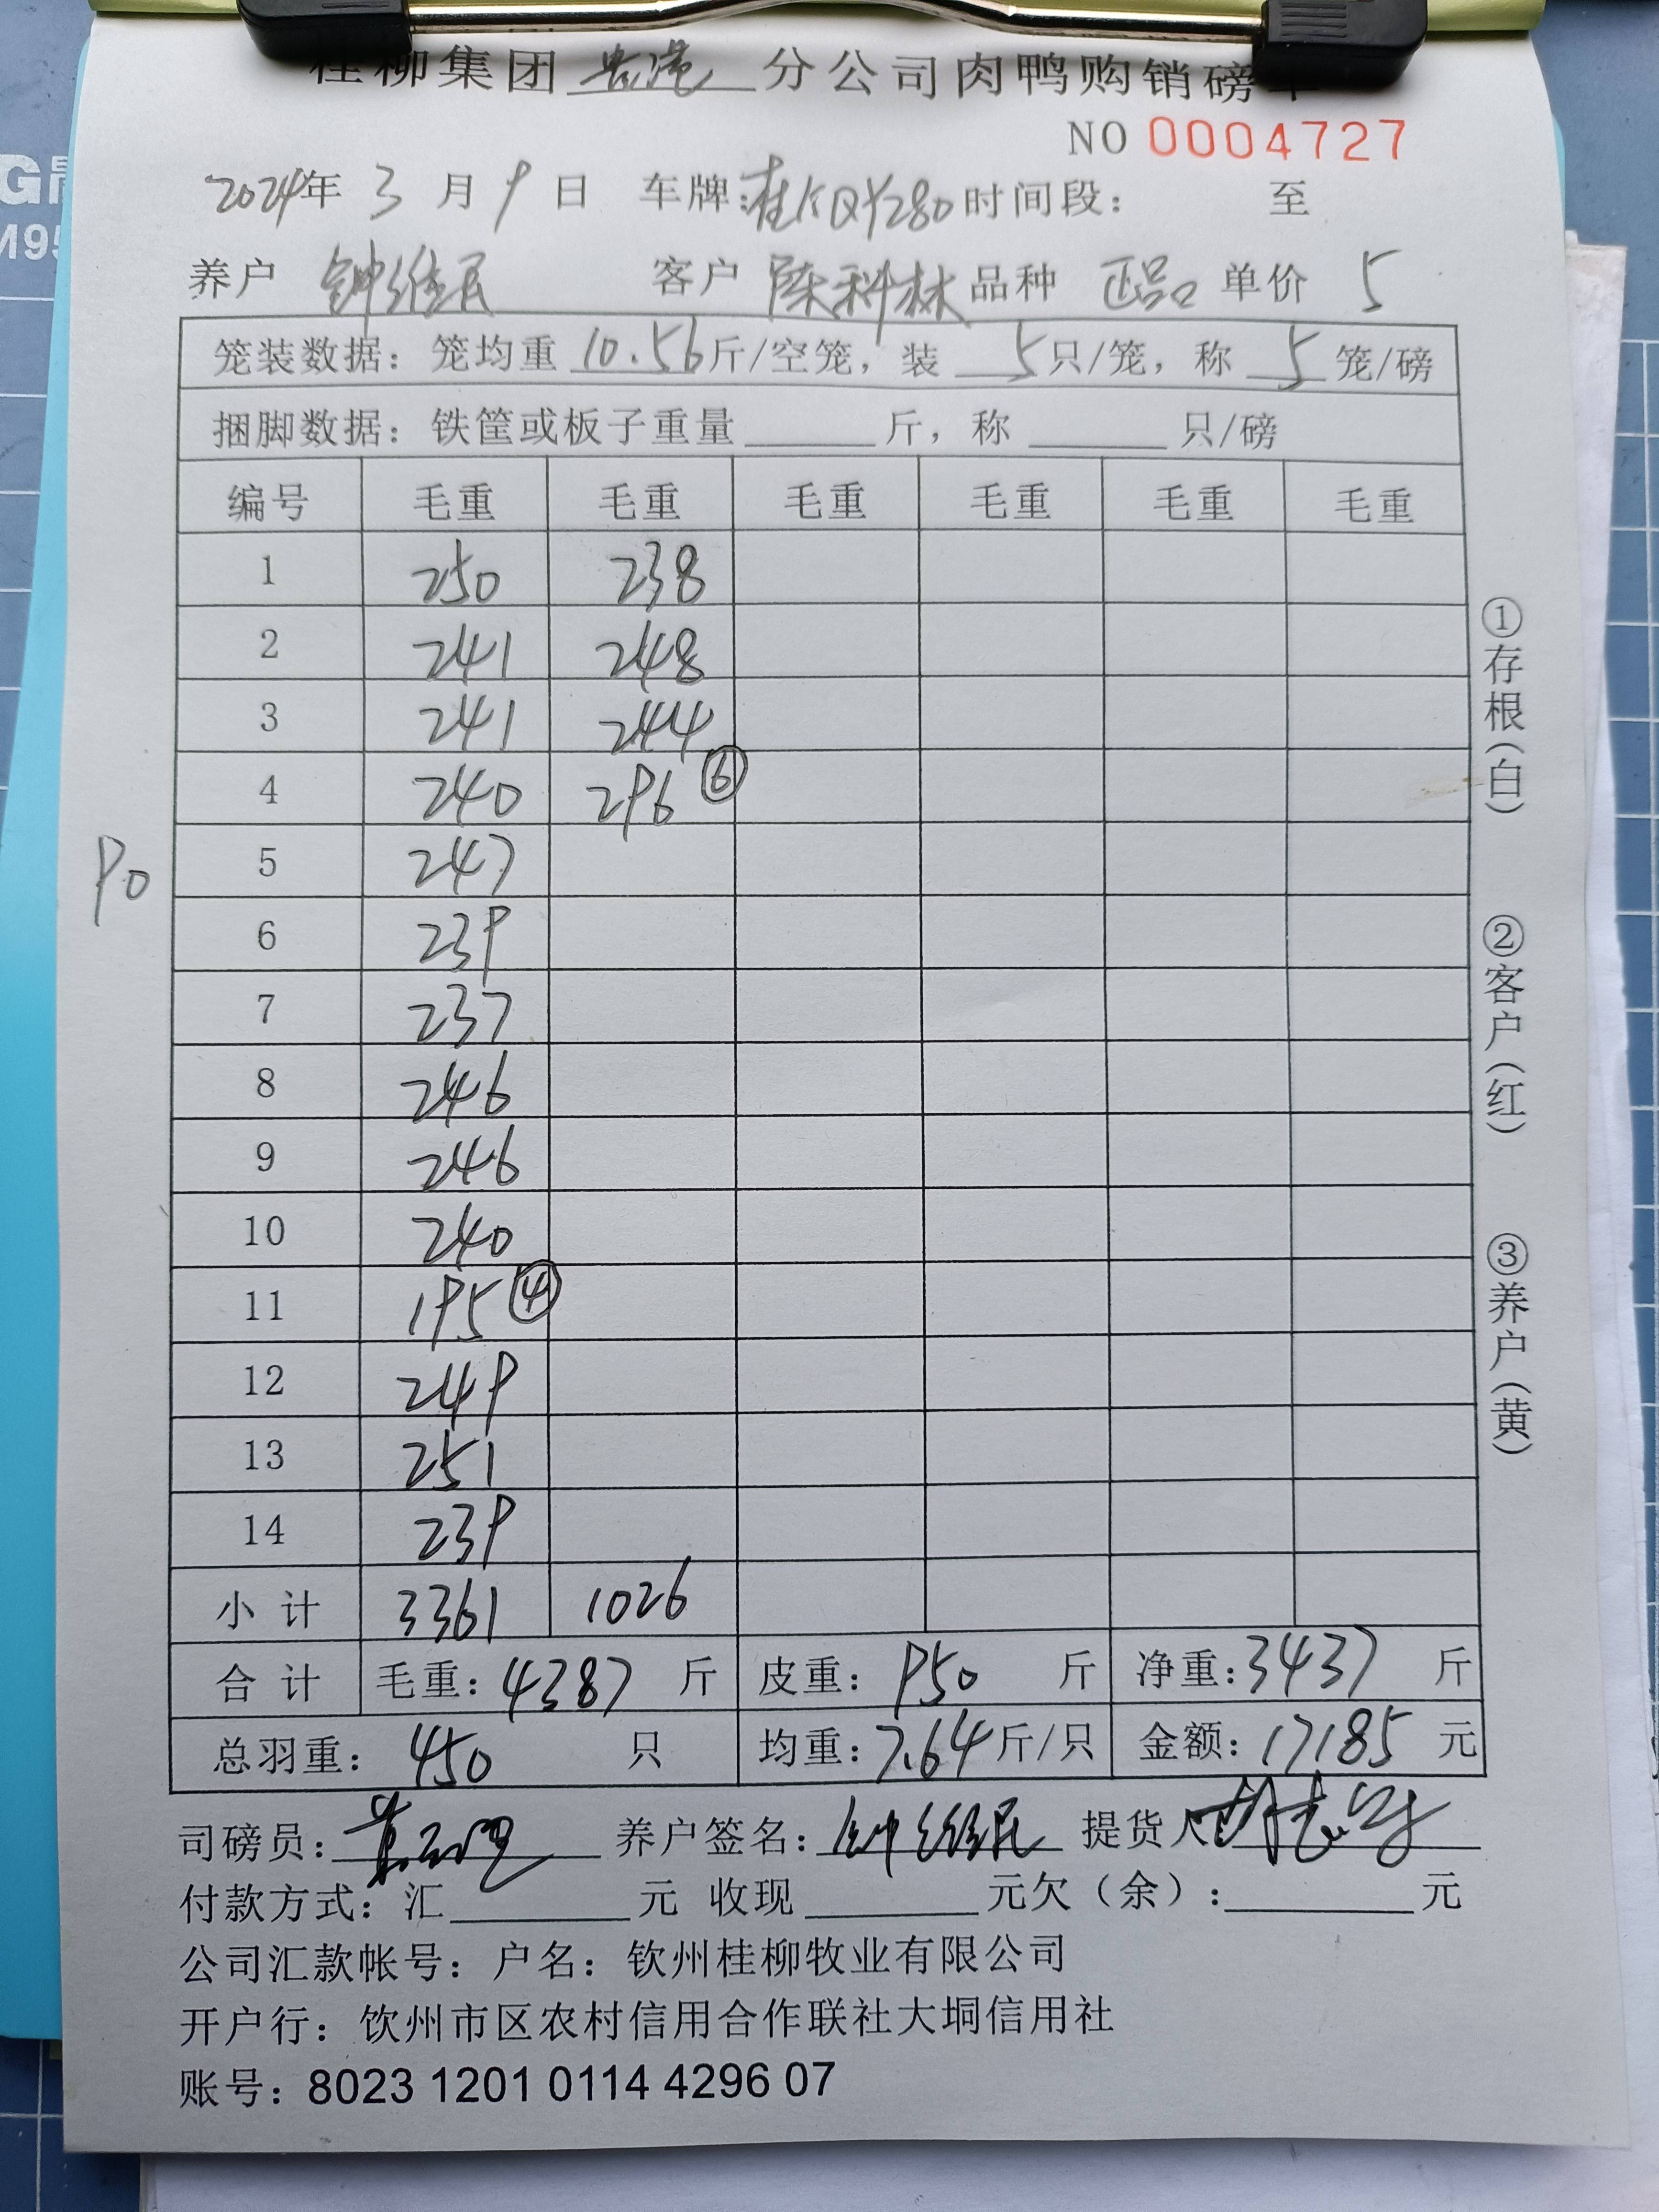 桂柳集团 贵港 分公司肉鸭购销磅单
NO 0004727
2024年 3 月 9 日 车牌:桂KQY280 时间段: 至
养户 钟维民 客户 陈科林 品种 正品 单价 5
笼装数据: 笼均重 10.56 斤/空笼, 装 5 只/笼, 称 5 笼/磅
捆脚数据: 铁筐或板子重量 斤, 称 只/磅
编号 毛重 毛重 毛重 毛重 毛重 毛重
1 250 238
2 241 248
3 241 244
4 240 296 ⑥
5 247
6 239
7 237
8 246
9 246
10 240
11 195 ④
12 249
13 251
14 239
小计 3361 1026
合计 毛重: 4387 斤 皮重: 950 斤 净重: 3437 斤
总羽重: 450 只 均重: 7.64 斤/只 金额: 17185 元
90
①存根(白)
②客户(红)
③养户(黄)
司磅员: 养户签名: 钟维民 提货人
付款方式: 汇 元 收现 元欠(余): 元
公司汇款帐号: 户名: 钦州桂柳牧业有限公司
开户行: 钦州市区农村信用合作联社大垌信用社
账号: 8023 1201 0114 4296 07